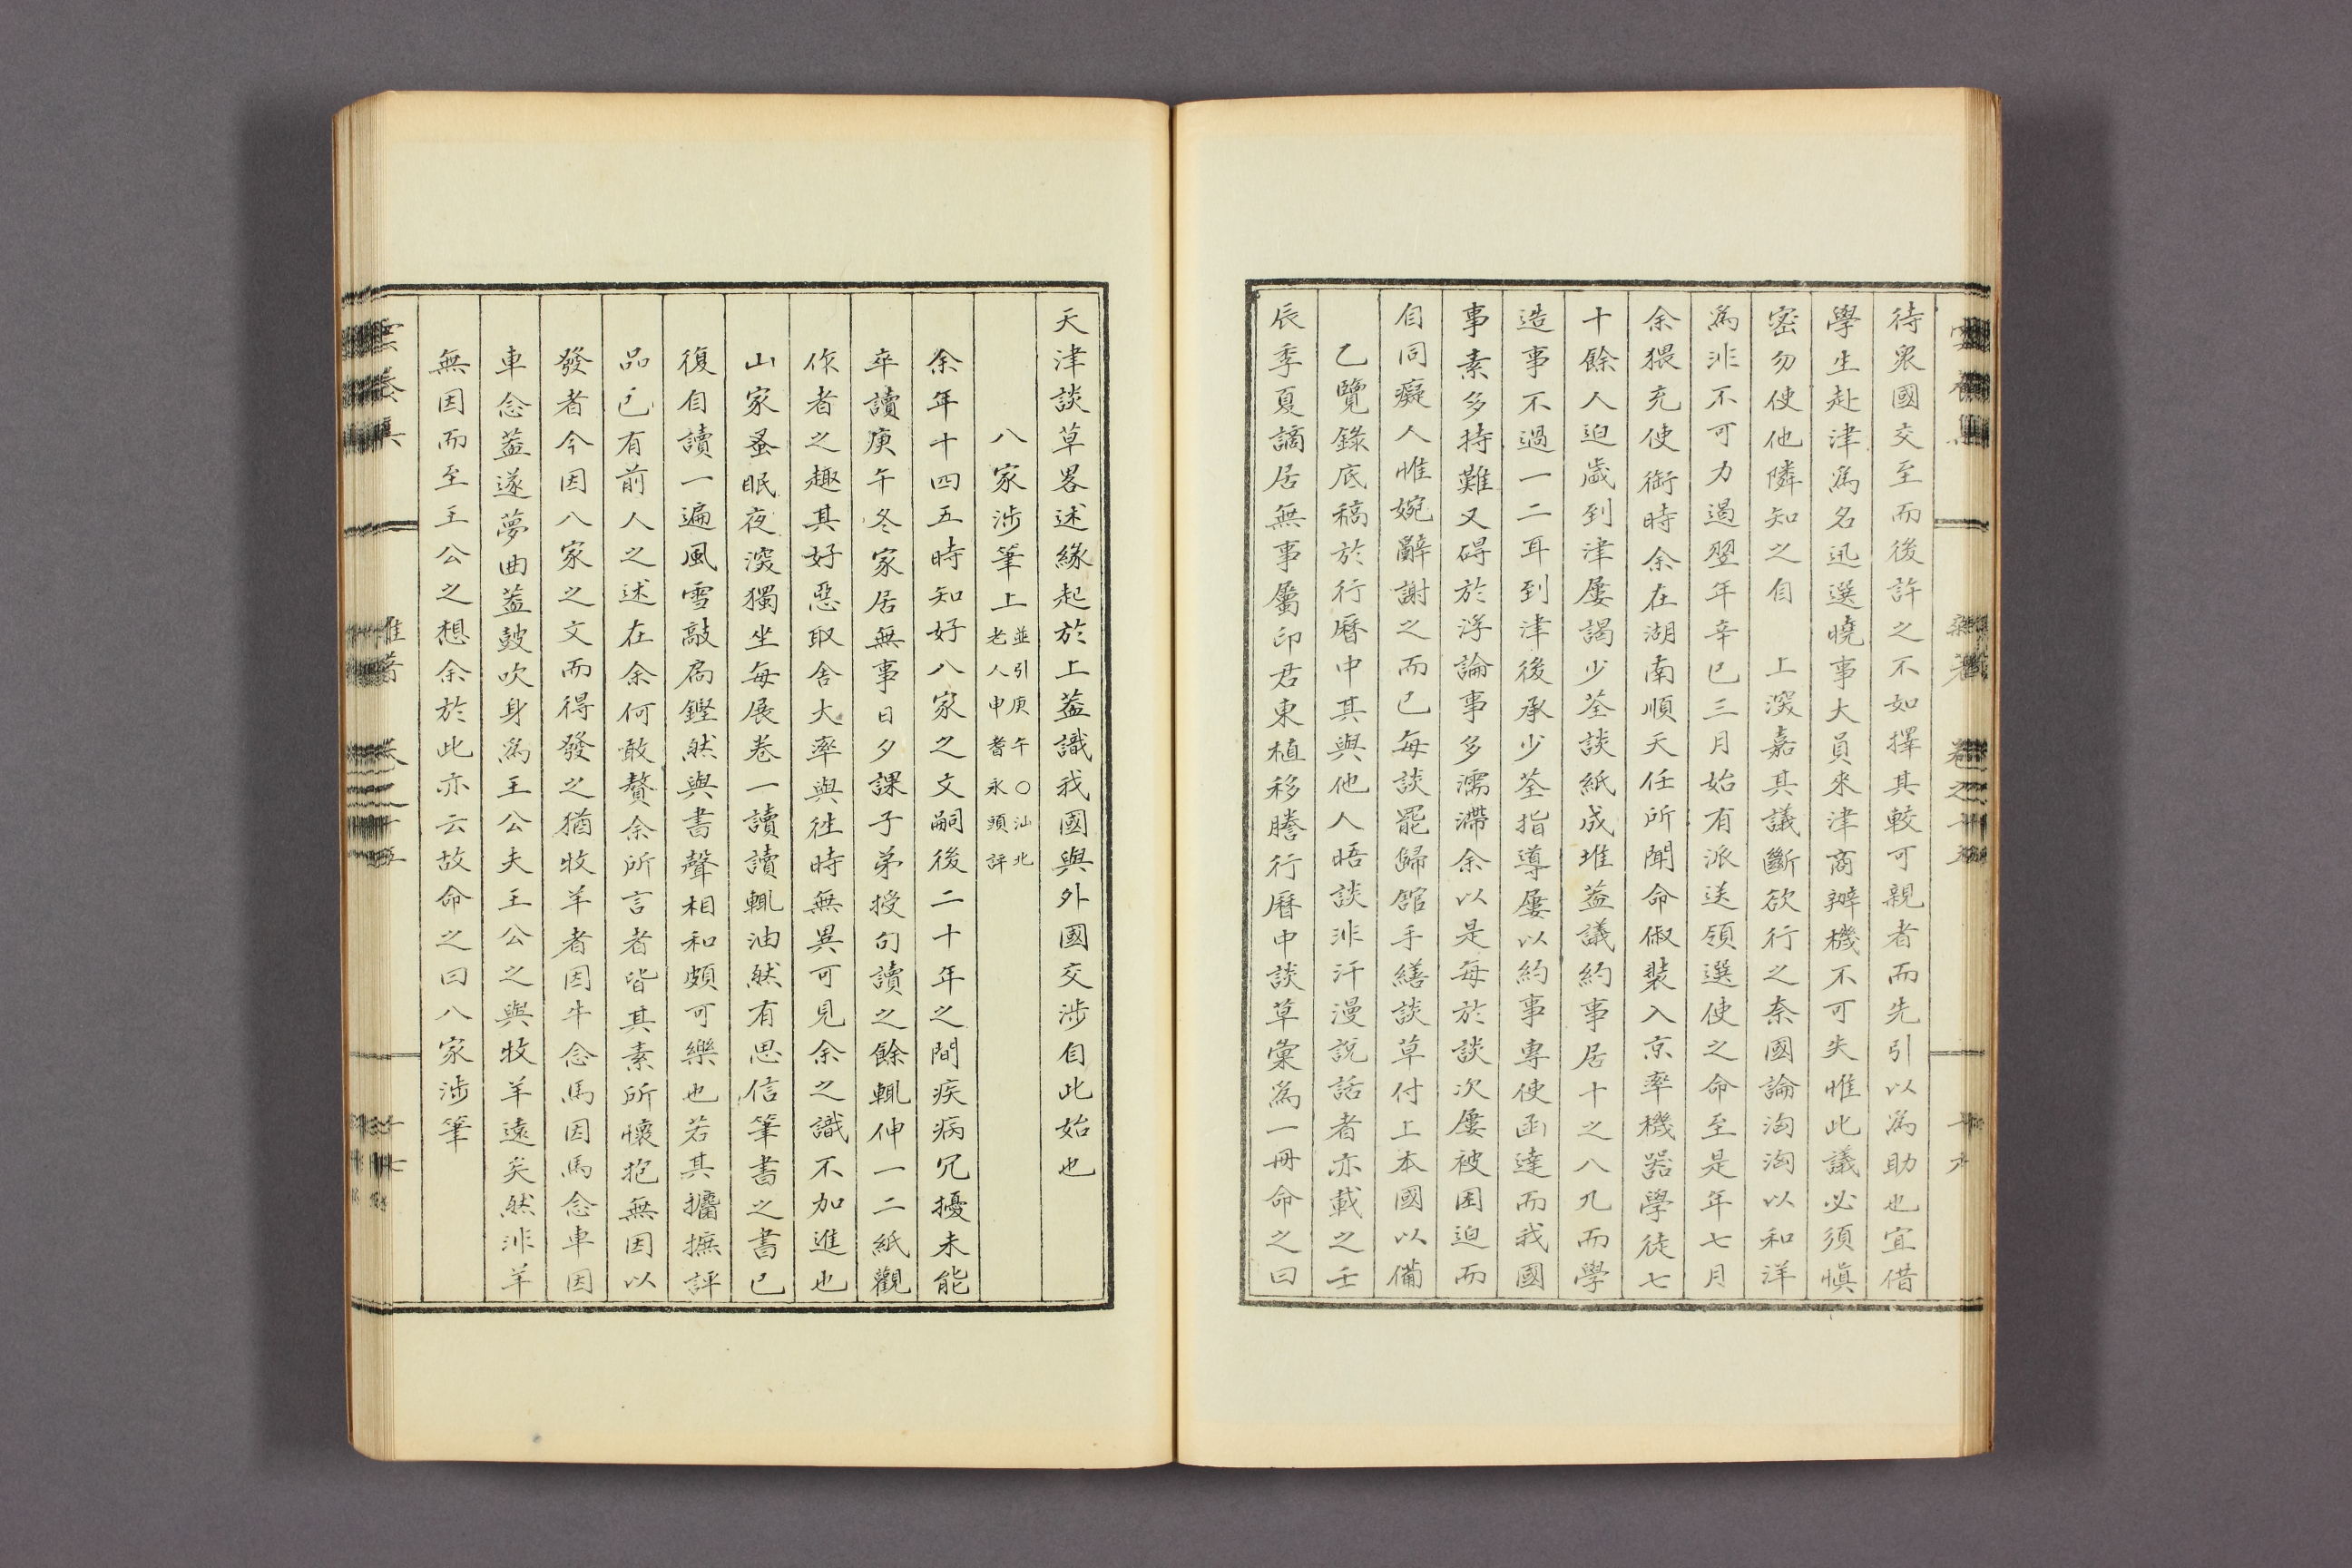 待衆國交至而後許之不如擇其較可親者而先引以爲助也宜借
學生赴津爲名迅選曉事大員來津商辦機不可失惟此議必須愼
密勿使他隣知之自 上深嘉其議斷欲行之奈國論洶洶以和洋
爲非不可力過翌年辛巳三月始有派送領選使之命至是年七月
余猥充使銜時余在湖南順天任所聞命俶裝入京率機器學徒七
十餘人迫歲到津屢謁少荃談紙成堆葢議約事居十之八九而學
造事不過一二耳到津後承少荃指導屢以約事專使函達而我國
事素多持難又碍於浮論事多濡滯余以是每於談次屢被困迫而
自同癡人惟婉辭謝之而已每談罷歸舘手繕談草付上本國以備
乙覽錄底稿於行曆中其與他人晤談非汗漫說話者亦載之壬
辰季夏謫居無事屬印君東植移謄行曆中談草彙爲一冊命之曰
天津談草畧述緣起於上葢識我國與外國交涉自此始也
八家涉筆上 並引庚午〇汕北老人申耆永頭評
余年十四五時知好八家之文嗣後二十年之間疾病冗擾未能
卒讀庚午冬家居無事日夕課子弟授句讀之餘輒伸一二紙觀
作者之趣其好惡取舍大率與徃時無異可見余之識不加進也
山家蚤眠夜深獨坐每展卷一讀讀輒油然有思信筆書之書已
復自讀一遍風雪敲扃鏗然與書聲相和頗可樂也若其攟摭評
品已有前人之述在余何敢贅余所言者皆其素所懷抱無因以
發者今因八家之文而得發之猶牧羊者因牛念馬因馬念車因
車念葢遂夢曲葢鼓吹身爲王公夫王公之與牧羊遠矣然非羊
無因而至王公之想余於此亦云故命之曰八家涉筆